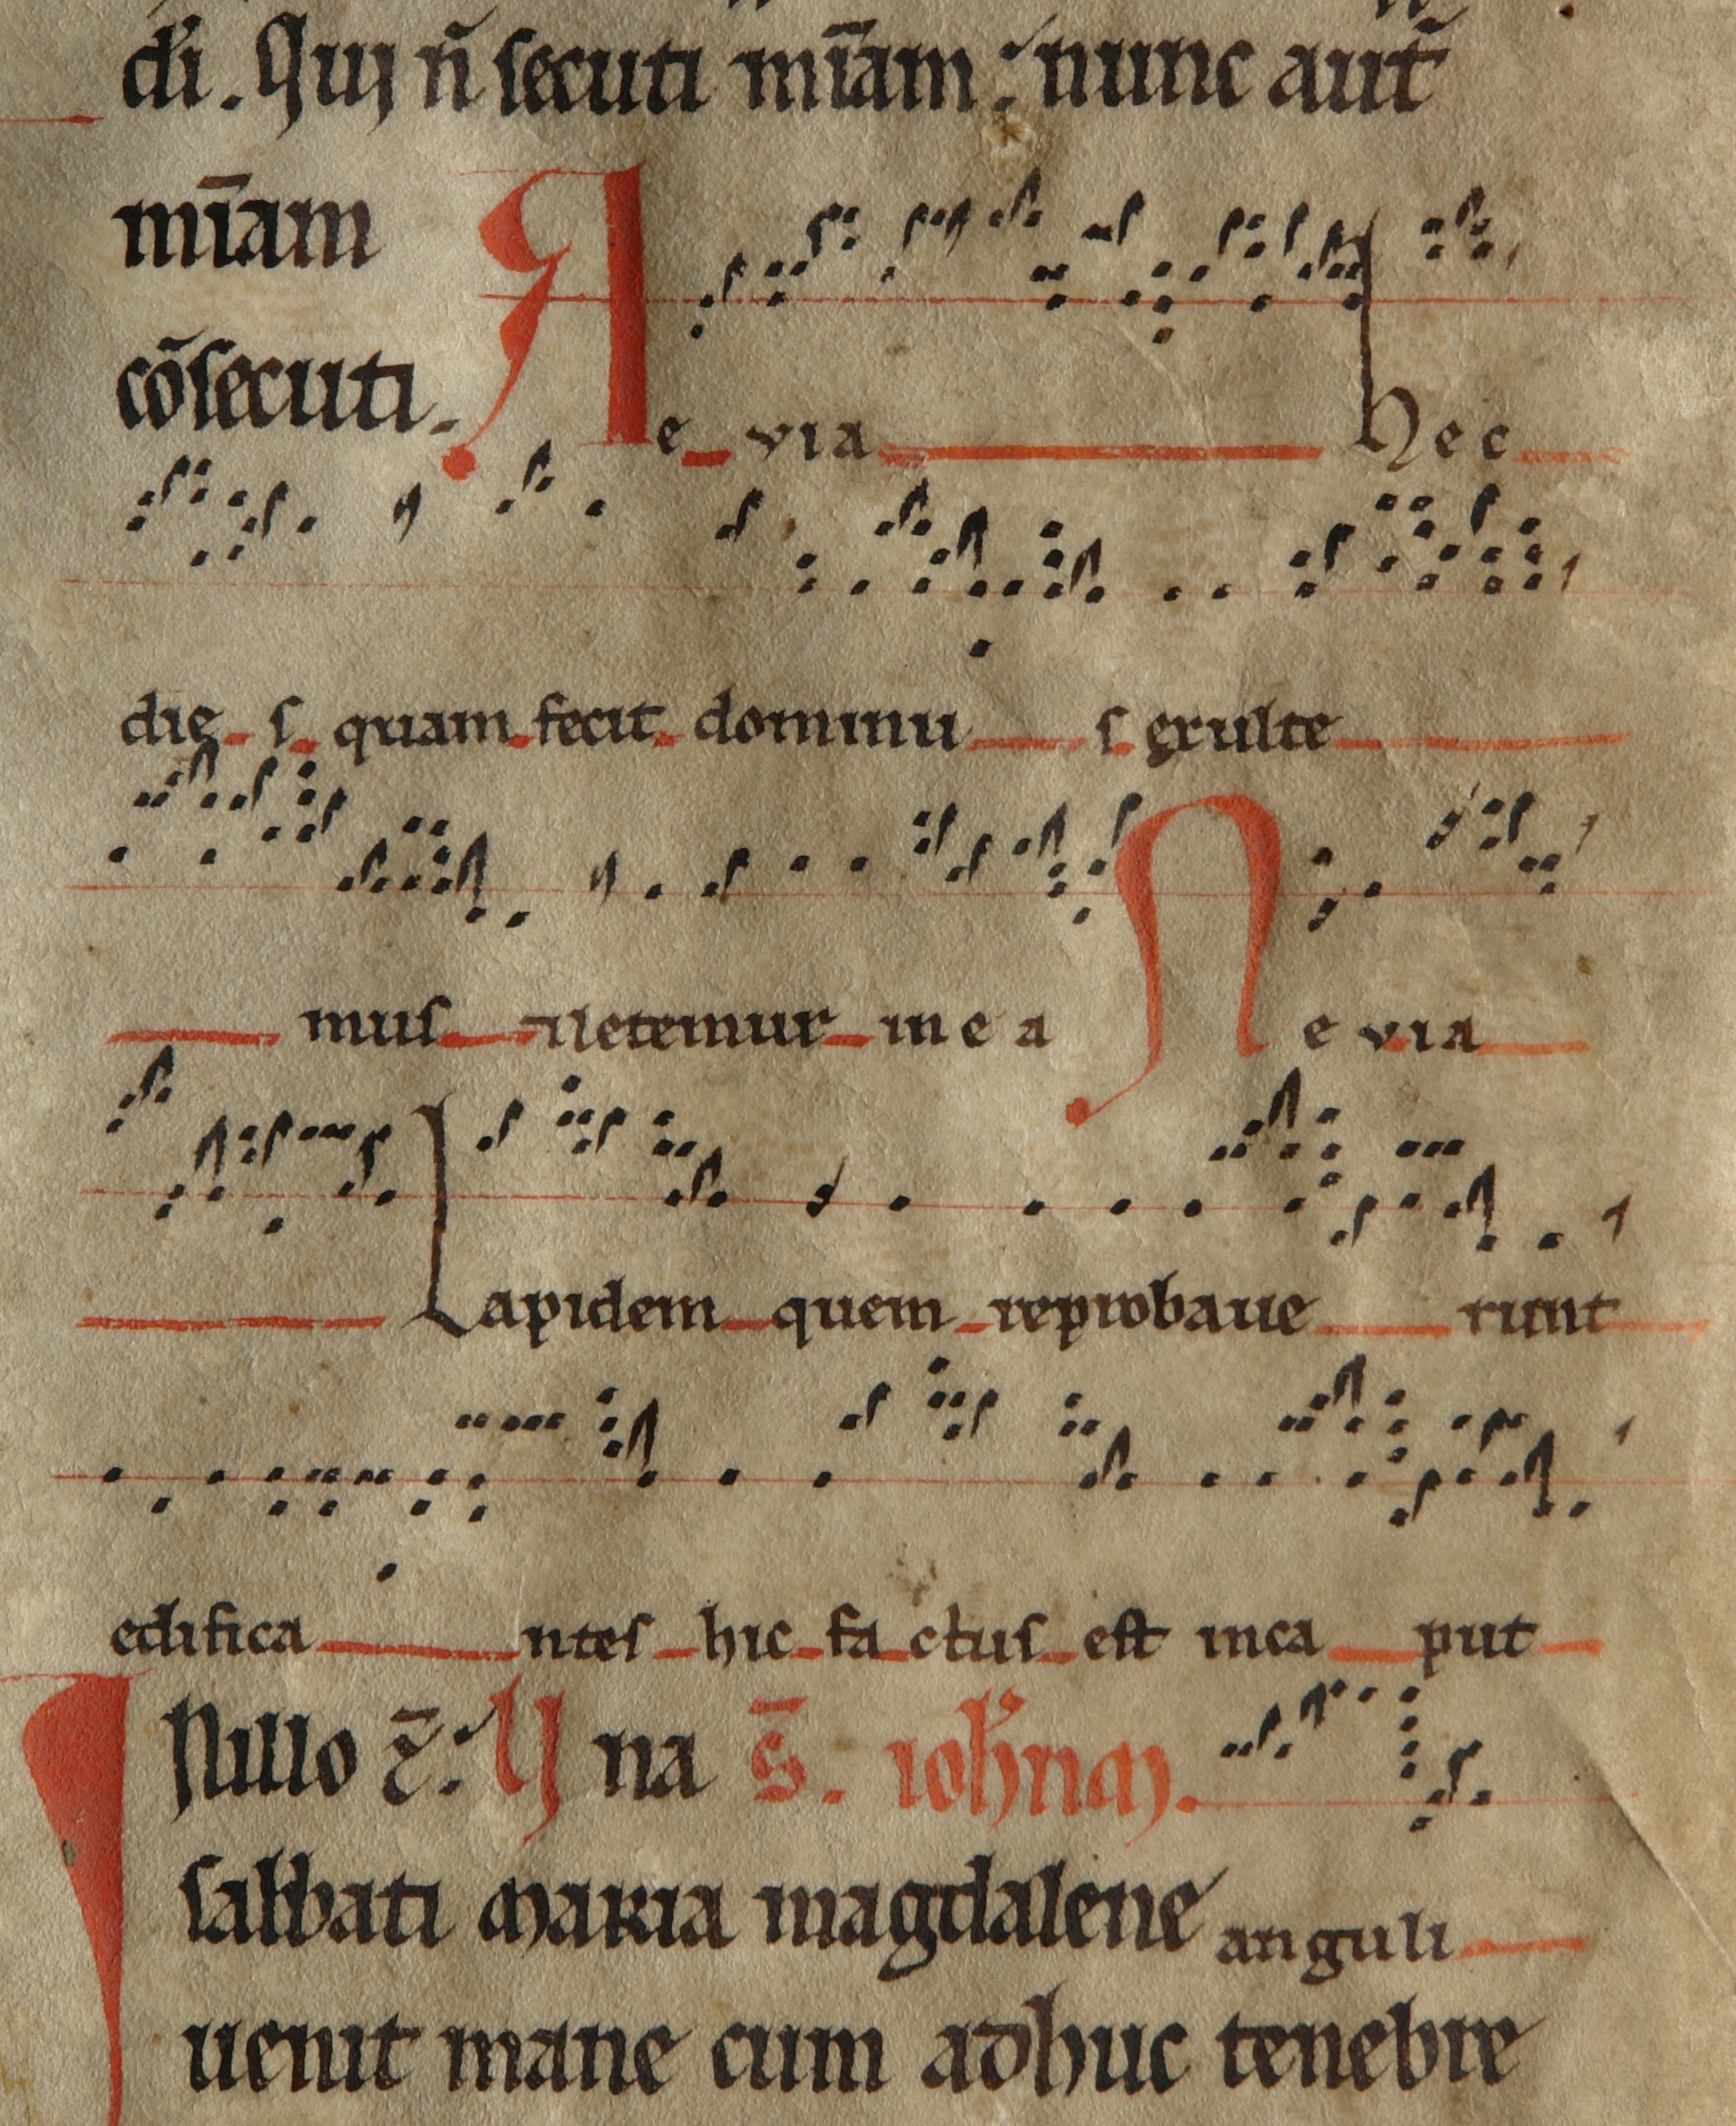 di. Qui n̄ secuti mīam: nunc aut̄
mīam
cōsecuti.
Ae via Hec
die s quam fecit dominu s exulte
mus _ & letemur in e a Ae via
Lapidem quem reprobaue runt
edifica ntes hic fa ctus est inca put
In illo t̄: Una S̄. ioh̄nem.
sabbati maria magdalene anguli
uenit mane cum adhuc tenebre